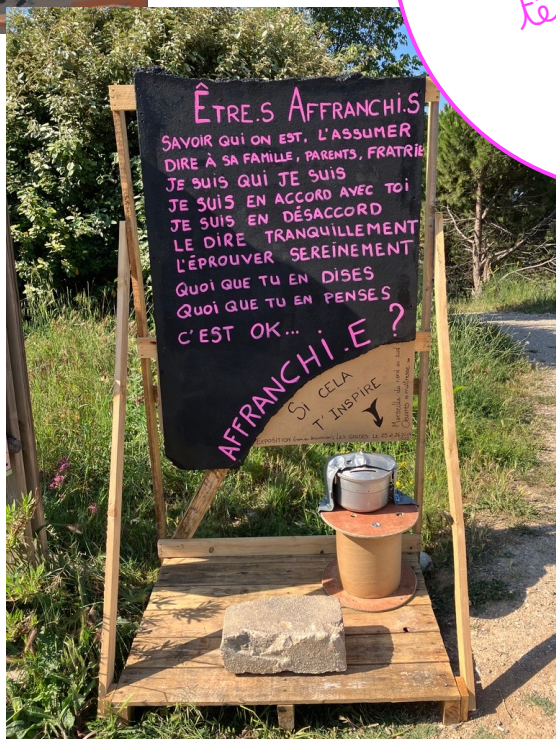 te
ÊTRE.S AFFRANCHI.S
SAVOIR QUI ON EST, L'ASSUMER
DIRE À SA FAMILLE, PARENTS, FRATRIE
JE SUIS QUI JE SUIS
JE SUIS EN ACCORD AVEC TOI
JE SUIS EN DÉSACCORD
LE DIRE TRANQUILLEMENT
L'ÉPROUVER SEREINEMENT
QUOI QUE TU EN DISES
QUOI QUE TU EN PENSES
C'EST OK...
AFFRANCHI.E ?
SI CELA
T'INSPIRE
EXPOSITION